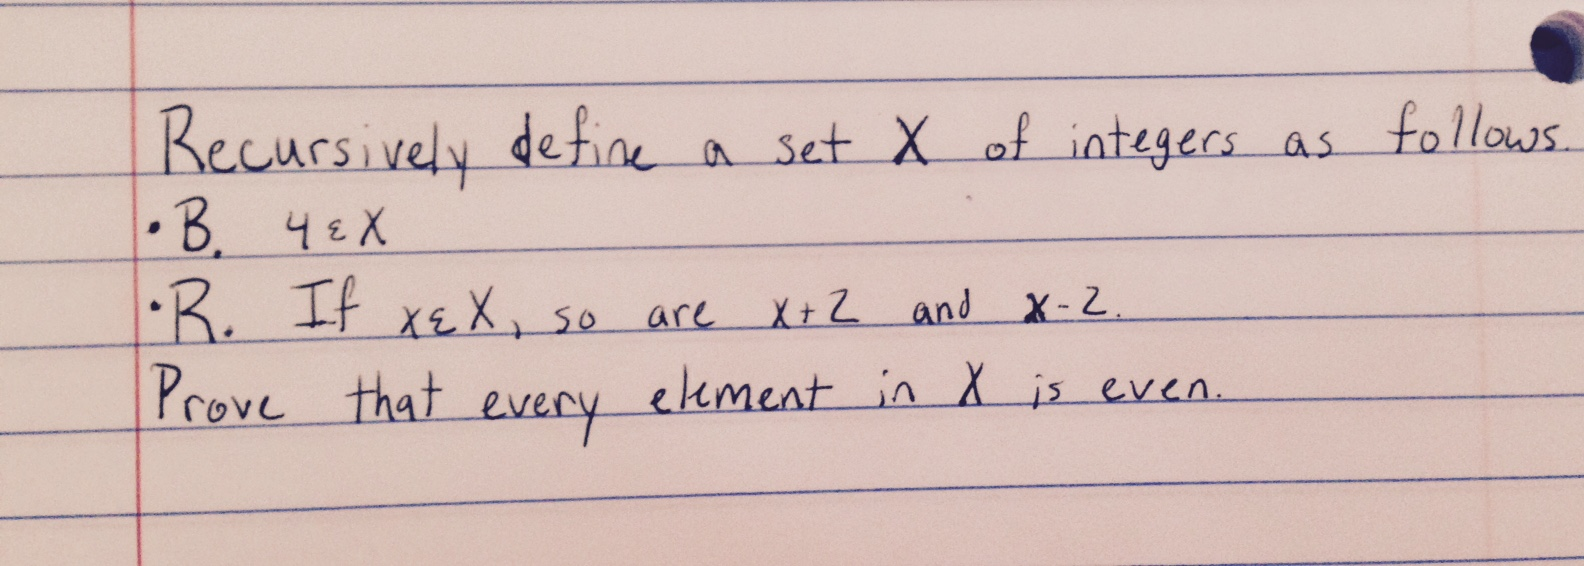 Recursively define a set X of integers as follows.
• B. 4 ε X
• R. If x ε X, so are x+2 and x-2.
Prove that every element in X is even.